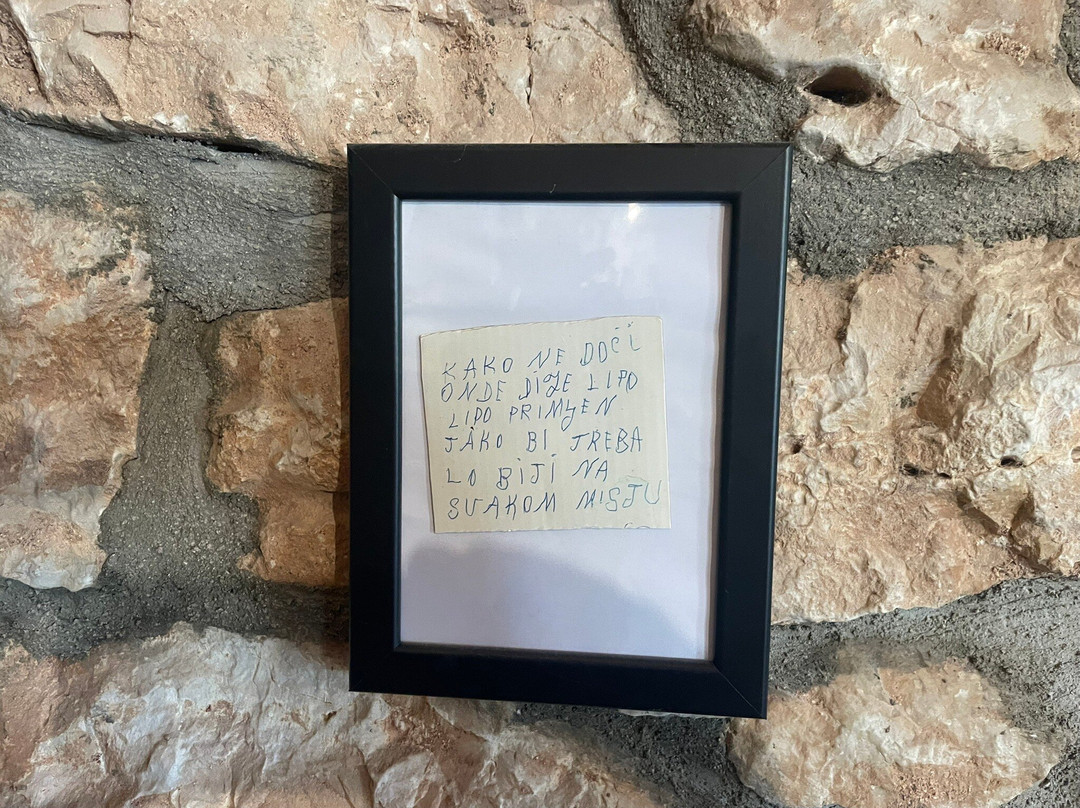 KAKO NE DOĆI
ONDE DIJE LIPO
LIPO PRIMJEN
TAKO BI TREBA
LO BITI NA
SVAKOM MISTU